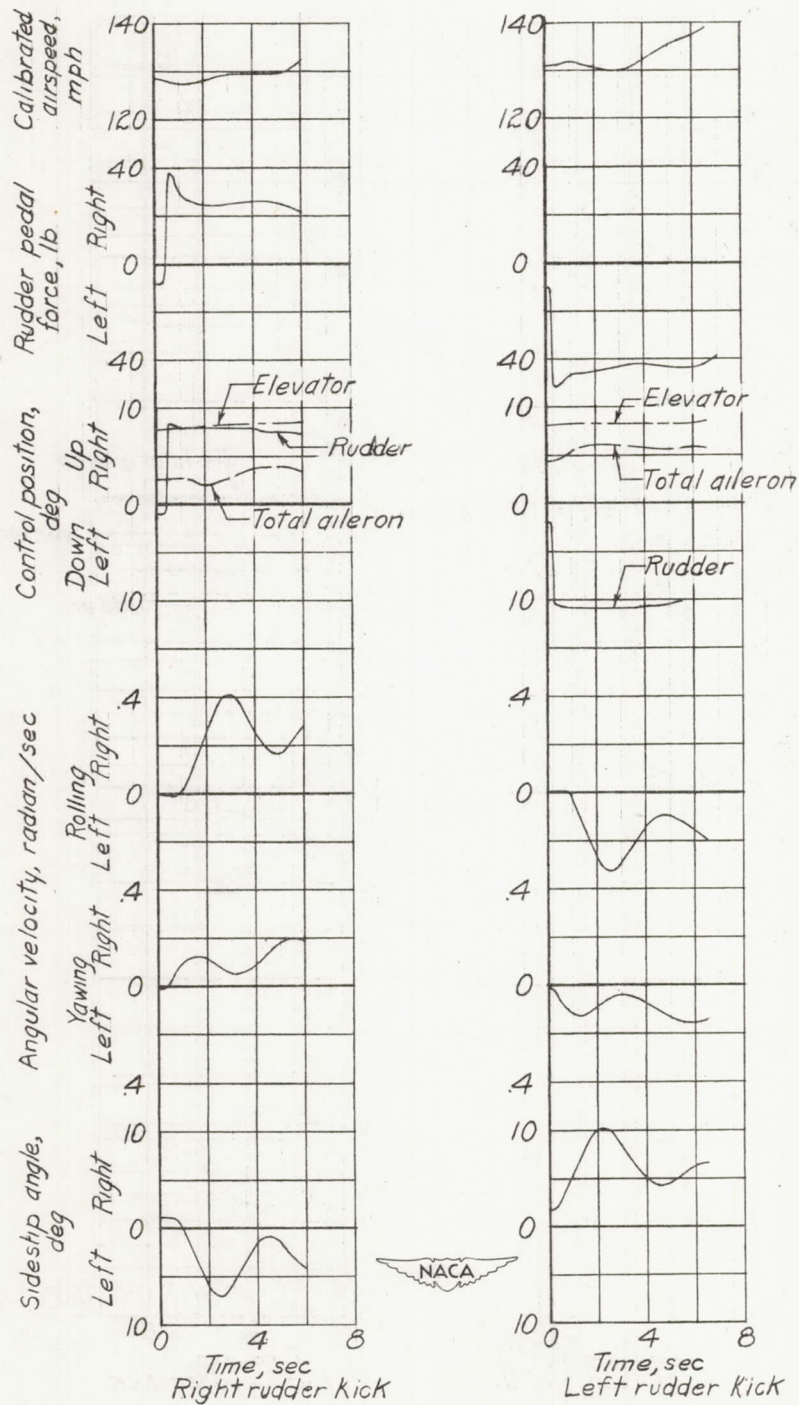 Calibrated
airspeed,
mph
140
120
Rudder pedal
force, lb
Left Right
40
0
40
Control position,
deg
Down Up
Left Right
10
0
10
Elevator
Rudder
Total aileron
Angular velocity, radian/sec
Rolling
Left Right
.4
0
.4
Yawing
Left Right
0
.4
Sideslip angle,
deg
Left Right
10
0
10
0 4 8
Time, sec
Right rudder kick
140
120
40
0
40
10
Elevator
Total aileron
0
Rudder
10
.4
0
.4
0
.4
10
0
10
0 4 8
Time, sec
Left rudder kick
NACA